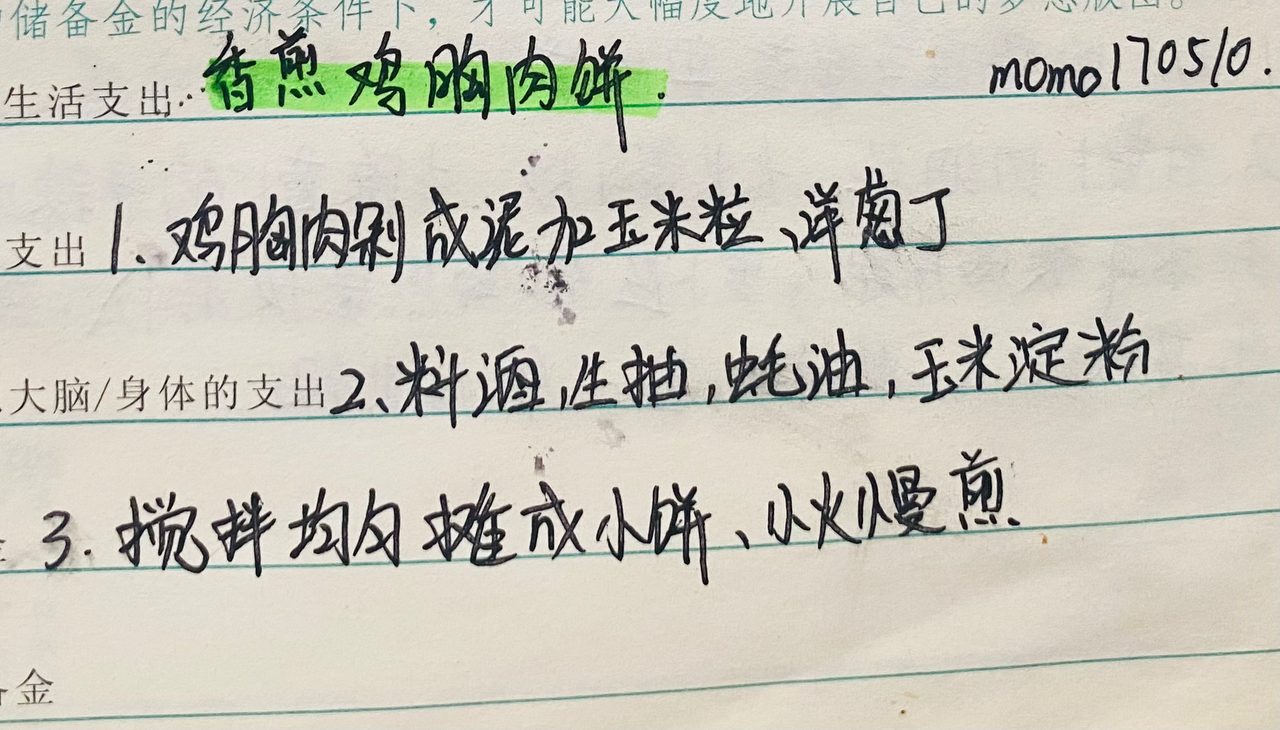 储备金的经济条件下，才可能大幅度地开展自己的梦想版图。
生活支出 香煎鸡胸肉饼. momo170510.
支出 1、鸡胸肉剁成泥加玉米粒、洋葱丁
大脑/身体的支出 2、料酒,生抽,蚝油,玉米淀粉
3. 搅拌均匀摊成小饼、小火慢煎.
金